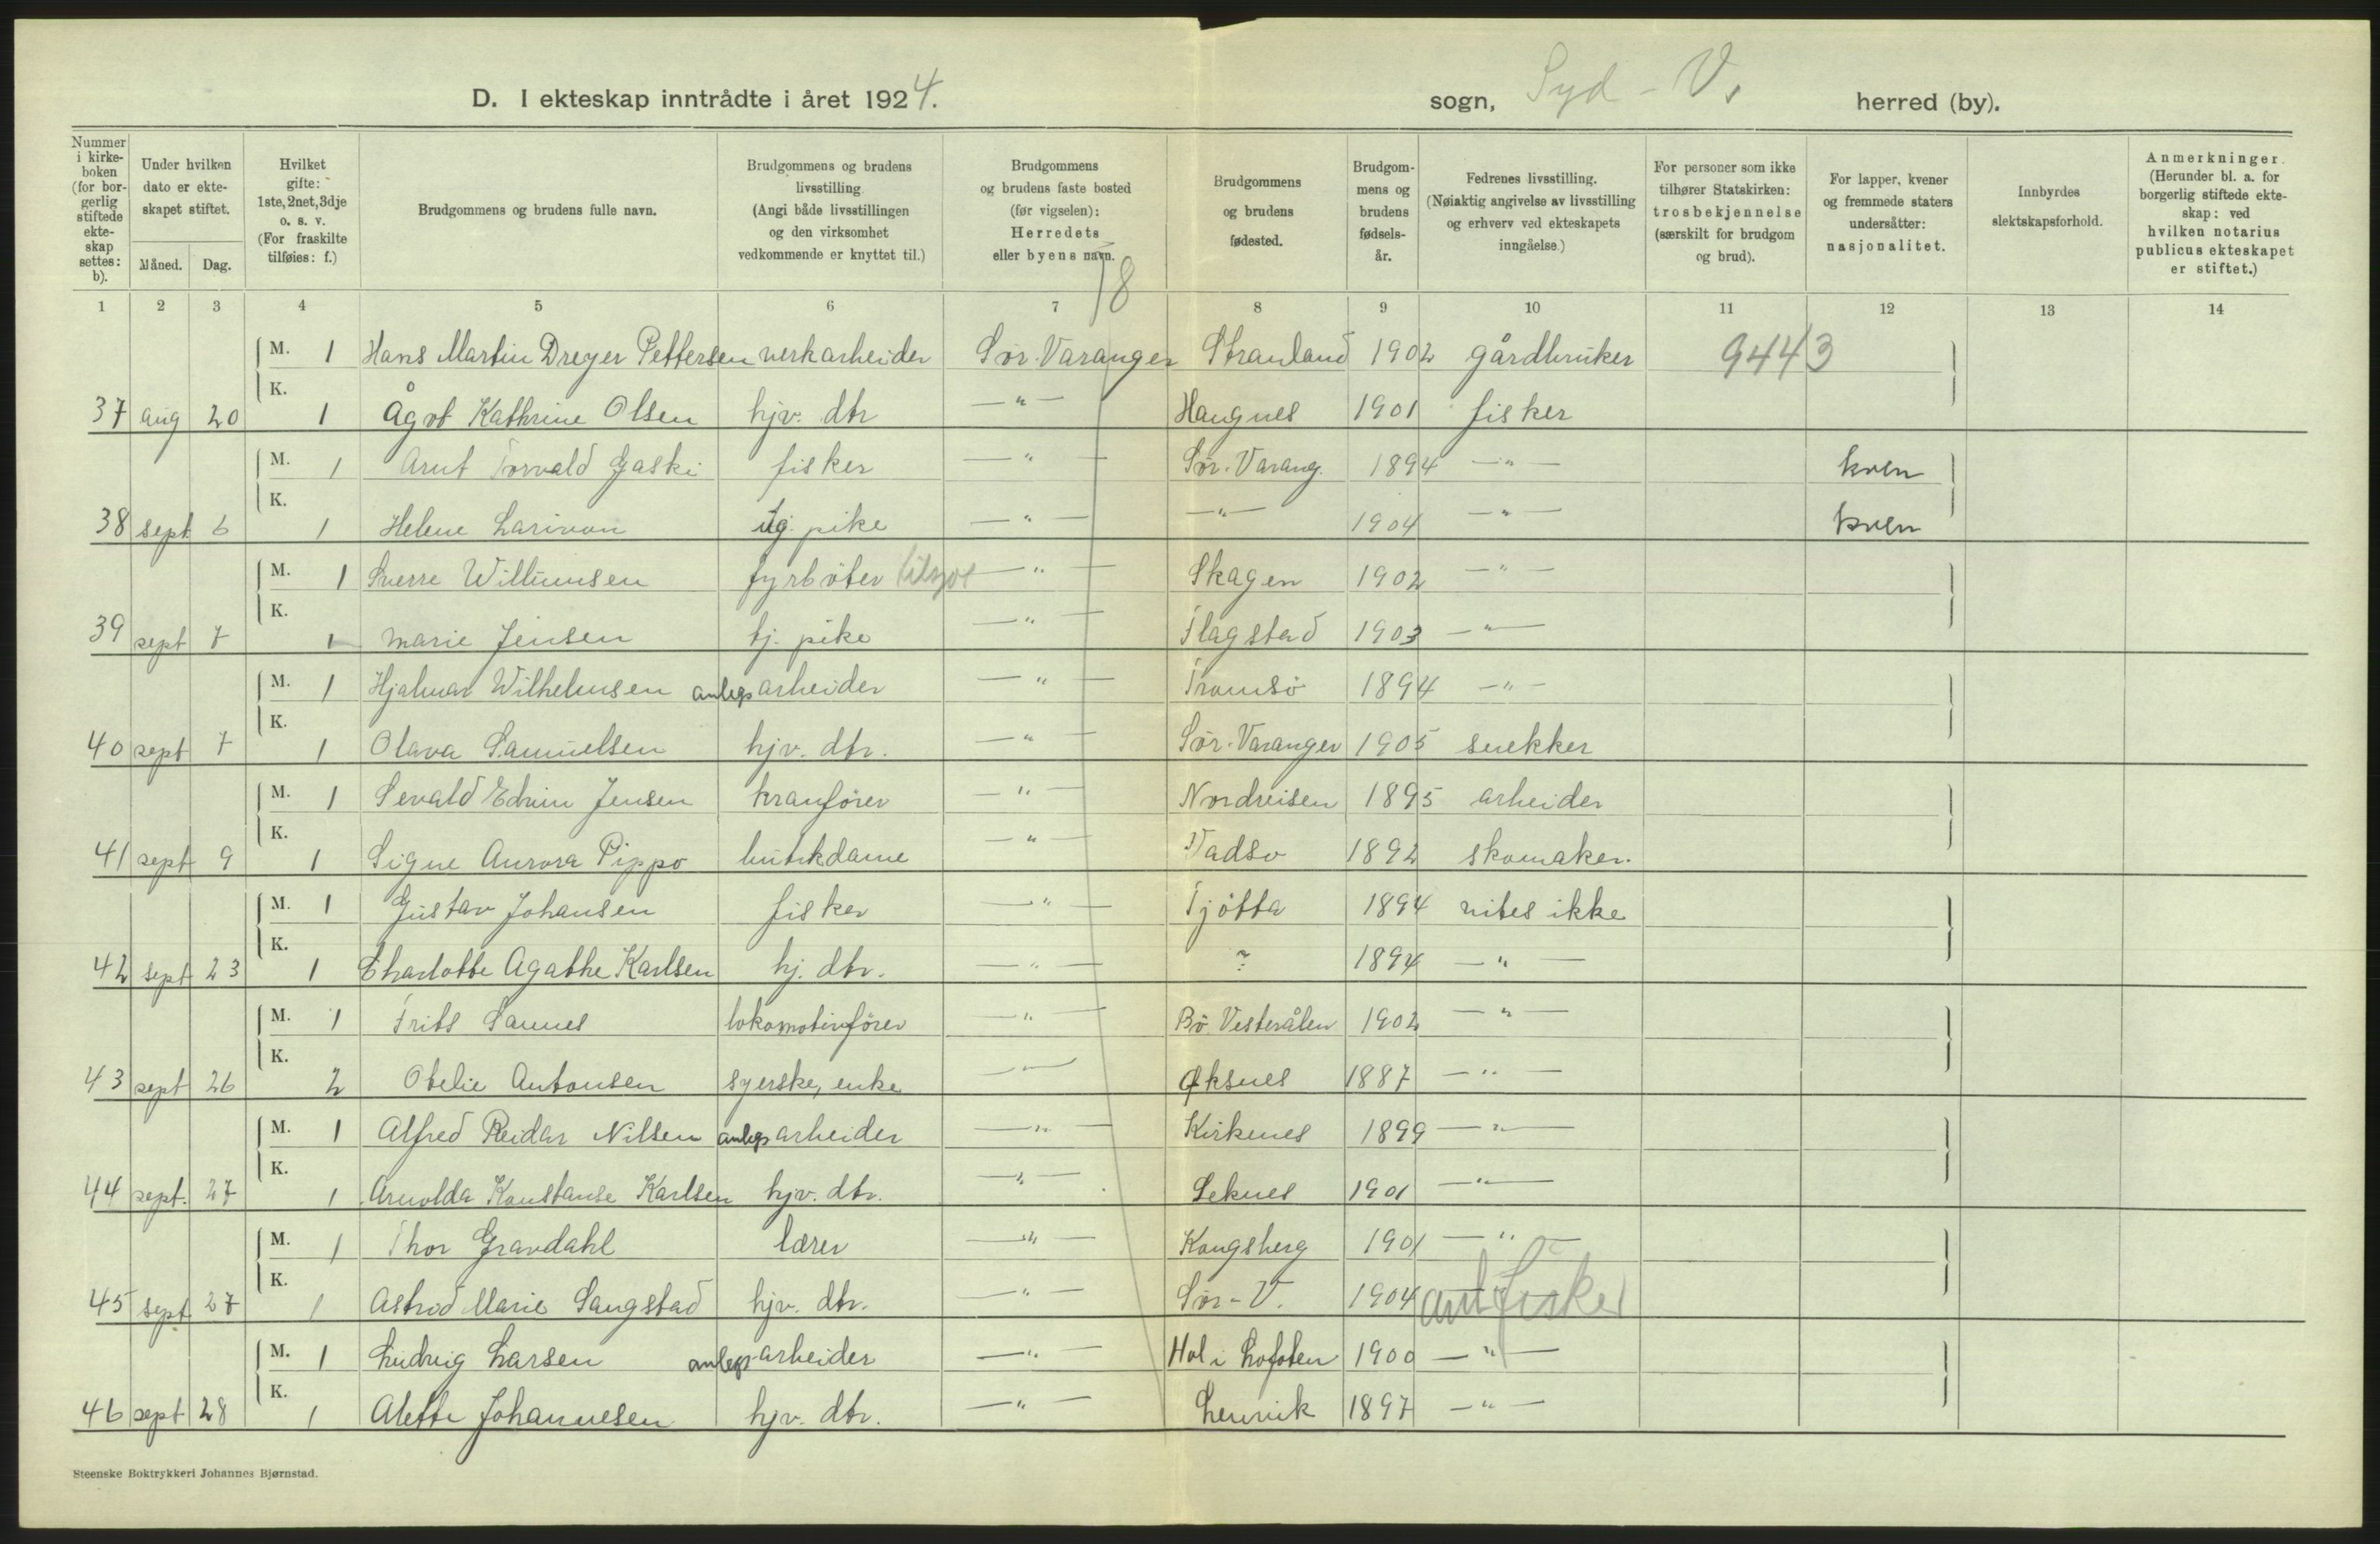 D. I ekteskap inntrådte i året 1924.
sogn, Syd-V. herred (by).
Nummer i kirkeboken (for borgerlig stiftede ekteskap settes: b).
Under hvilken dato er ekteskapet stiftet.
Måned. Dag.
Hvilket gifte: 1ste, 2net, 3dje o. s. v. (For fraskilte tilføies: f.)
Brudgommens og brudens fulle navn.
Brudgommens og brudens livsstilling (Angi både livsstillingen og den virksomhet vedkommende er knyttet til.)
Brudgommens og brudens faste bosted (før vigselen): Herredets eller byens navn.
Brudgommens og brudens fødested.
Brudgommens og brudens fødselsår.
Fedrenes livsstilling. (Nøiaktig angivelse av livsstilling og erhverv ved ekteskapets inngåelse.)
For personer som ikke tilhører Statskirken: trosbekjennelse (særskilt for brudgom og brud).
For lapper, kvener og fremmede staters undersåtter: nasjonalitet.
Innbyrdes slektskapsforhold.
Anmerkninger. (Herunder bl. a. for borgerlig stiftede ekteskap: ved hvilken notarius publicus ekteskapet er stiftet.)
18
1 2 3 4 5 6 7 8 9 10 11 12 13 14
M. 1 Hans Martin Dreyer Pettersen verkarbeider Sör-Varanger Stranland 1902 gårdbruker 9443
37 aug 20 K. 1 Ågot Kathrine Olsen hjv. dtr —"— Haugnes 1901 fisker
M. 1 Arnt Torvald Gaski fisker —"— Sör-Varang. 1894 —"— kven
38 sept 6 K. 1 Helene Larivon ug. pike —"— —"— 1904 —"— kven
M. 1 Sverre Willumsen fyrböter tilsjøs —"— Skagen 1902 —"—
39 sept 7 K. 1 Marie Jensen tj. pike —"— Flagstad 1903 —"—
M. 1 Hjalmar Wilhelmsen anlegsarbeider —"— Tromsö 1894 —"—
40 sept 7 K. 1 Olava Samuelsen hjv. dtr. —"— Sör-Varanger 1905 snekker
M. 1 Sevald Edvin Jensen kranförer —"— Nordreisen 1895 arbeider
41 sept 9 K. 1 Signe Aurora Pippo butikdame —"— Vadsø 1892 skomaker.
M. 1 Gustav Johansen fisker —"— Tjötta 1894 vites ikke
42 sept 23 K. 1 Charlotte Agathe Karlsen hj. dtr. —"— ? 1894 —"—
M. 1 Frits Sannes lokomotivförer —"— Bö. Vesterålen 1902 —"—
43 sept 26 K. 2 Otelie Antonsen syerske, enke —"— Øksnes 1887 —"—
M. 1 Alfred Reidar Nilsen anlegsarbeider —"— Kirkenes 1899 —"—
44 sept. 27 K. 1 Arnolda Konstanse Karlsen hjv. dtr. —"— Leknes 1901 —"—
M. 1 Thor Gravdahl lærer —"— Kongsberg 1901 —"—
45 sept 27 K. 1 Astrid Marie Sangstad hjv. dtr. —"— Sör-V. 1904 ant fisker
M. 1 Ludvig Larsen anlegsarbeider —"— Hol i Lofoten 1900 —"—
46 sept 28 K. 1 Alette Johannesen hjv. dtr. —"— Lenvik 1897 —"—
Steenske Boktrykkeri Johannes Bjørnstad.